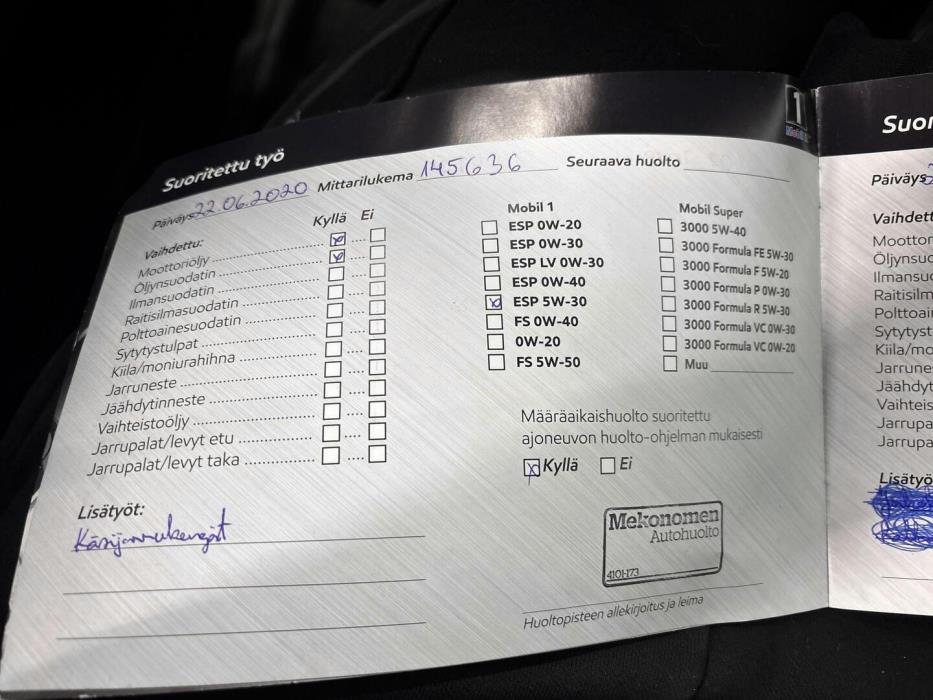 Suoritettu työ
Päiväys 22.06.2020 Mittarilukema 145636 Seuraava huolto
Kyllä Ei
Vaihdettu:
Moottoriöljy
Öljynsuodatin
Ilmansuodatin
Raitisilmasuodatin
Polttoainesuodatin
Sytytystulpat
Kiila/moniurahihna
Jarruneste
Jäähdytinneste
Vaihteistoöljy
Jarrupalat/levyt etu
Jarrupalat/levyt taka
Lisätyöt:
Käsijarrukengät
Mobil 1
ESP 0W-20
ESP 0W-30
ESP LV 0W-30
ESP 0W-40
ESP 5W-30
FS 0W-40
0W-20
FS 5W-50
Mobil Super
3000 5W-40
3000 Formula FE 5W-30
3000 Formula F 5W-20
3000 Formula P 0W-30
3000 Formula R 5W-30
3000 Formula VC 0W-30
3000 Formula VC 0W-20
Muu
Määräaikaishuolto suoritettu
ajoneuvon huolto-ohjelman mukaisesti
Kyllä Ei
Mekonomen
Autohuolto
4101-173
Huoltopisteen allekirjoitus ja leima
1
Suor
Päiväys
Vaihdett
Moottor
Öljynsuo
Ilmansuo
Raitisilm
Polttoai
Sytytyst
Kiila/mo
Jarrune
Jäähdyt
Vaihteis
Jarrupa
Jarrupa
Lisätyö